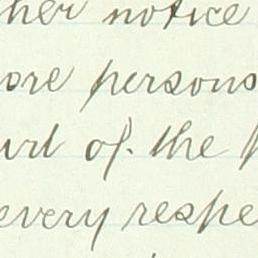 her notice
ore persons
urt of the
every respe